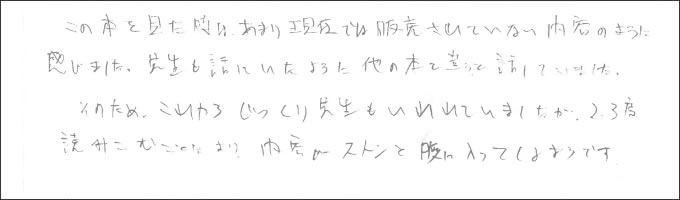 この本を見た時は、あまり現在では販売されていない内容のように
感じました。先生も話していたように他の本と違うと話していました。
そのため、これからじっくり先生もいわれていましたが、2.3度
読みこむことにより内容がストンと腹に入ってしまうです